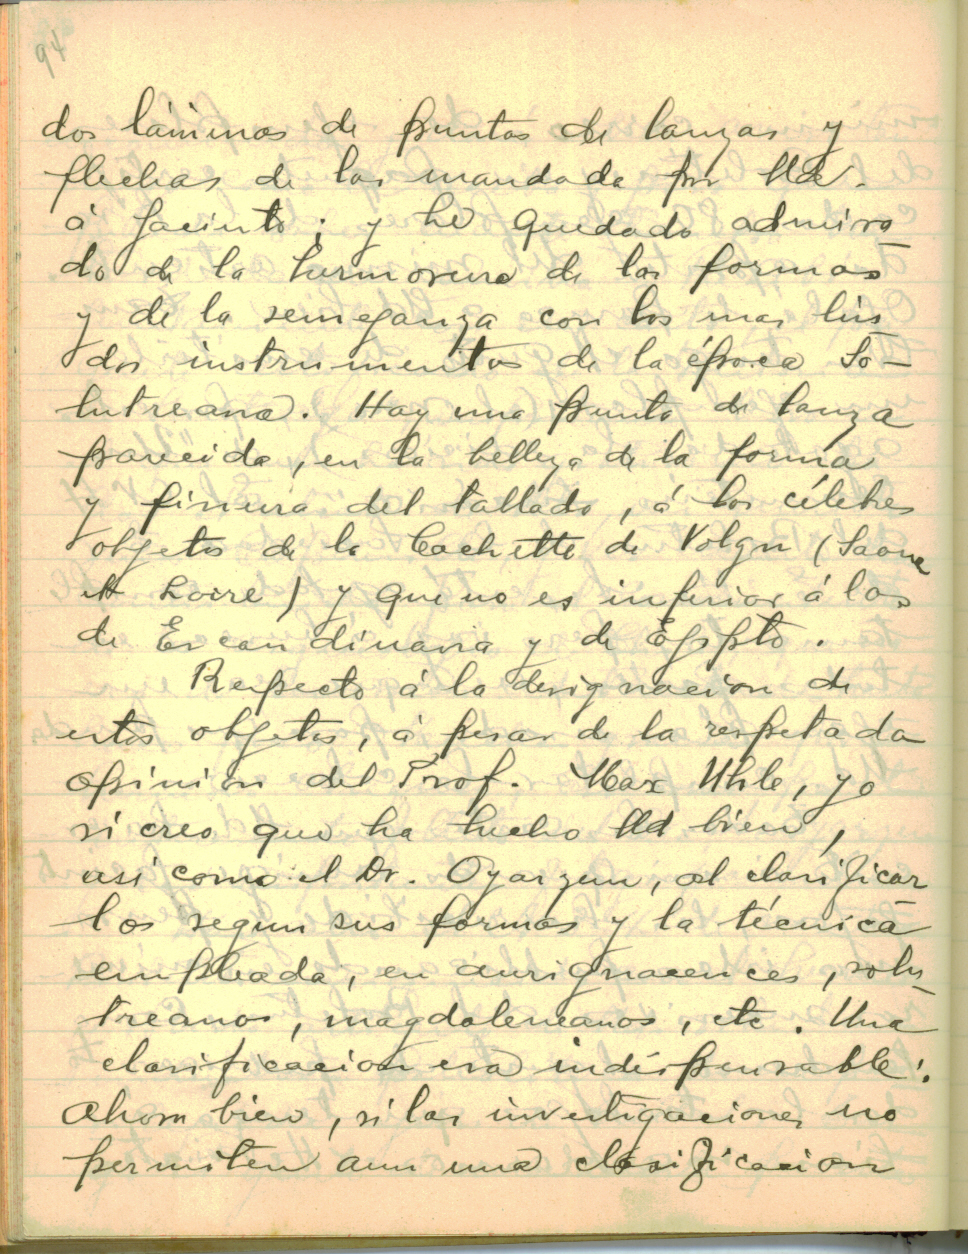 94
dos láminas de puntas de lanzas y
flechas de las mandada por Ud.
á Jacinto; y he quedado admira
do de la hermosura de las formas
y de la semeganza con los mas lin
dos instrumentos de la época So-
lutreana. Hay una punta de lanza
parecida, en la belleza de la forma
y finura del tallado, á los célebres
objetos de la Cachette de Volgu (Saone
et Loire) y que no es inferior á los
de Escandinavia y de Egipto.
Respecto á la designacion de
estos objetos, á pesar de la respetada
opinion del Prof. Max Uhle, yo
si creo que ha hecho Ud bien,
asi como el Dr. Oyarzun, al clasificar
los segun sus formas y la técnica
empleada, en aurignacences, solu-
treanos, magdaleneanos, etc. Una
clasificacion era indispensable.
Ahora bien, si las investigaciones no
permiten aun una clasificacion